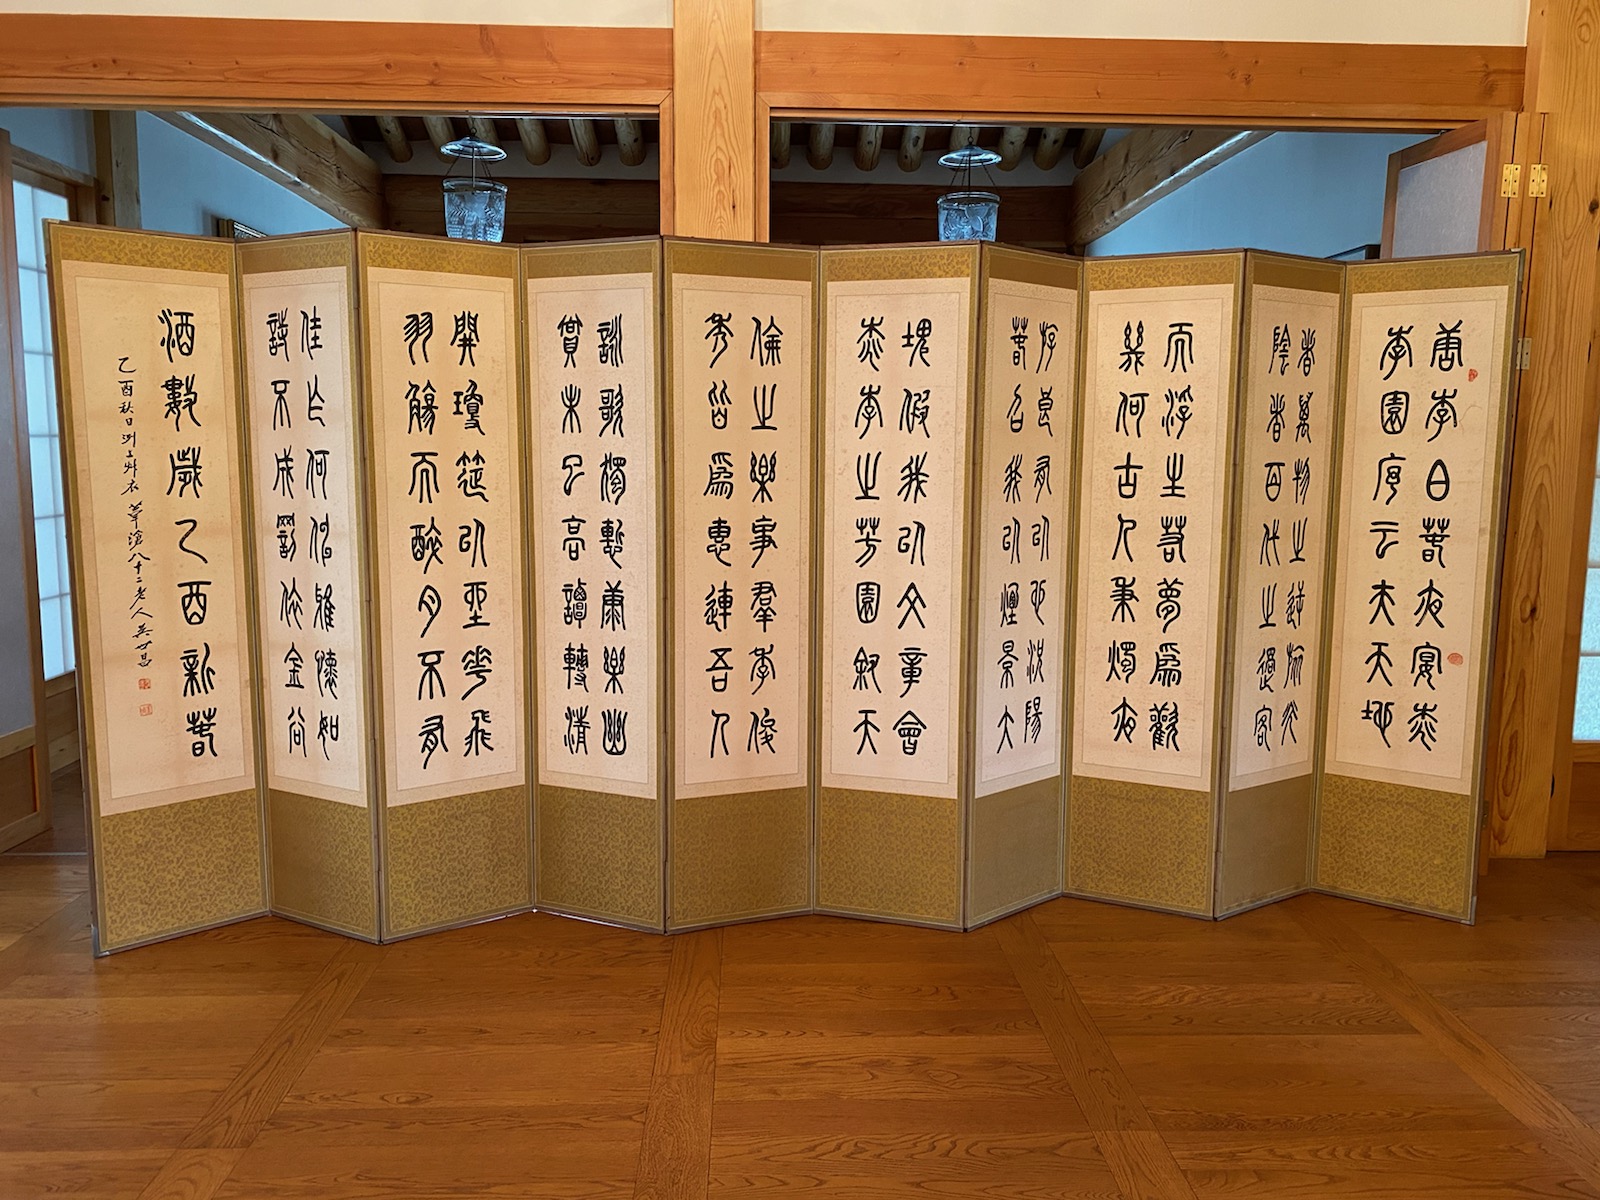 唐李白春夜宴桃
李園序云夫天地
者萬物之逆旅光
陰者百代之過客
而浮生若夢爲歡
幾何古人秉燭夜
遊良有以也況陽
春召我以煙景大
塊假我以文章會
桃李之芳園敘天
倫之樂事羣季俊
秀皆爲惠連吾人
詠歌獨慙康樂幽
賞未已高譚轉清
開瓊筵以坐花飛
羽觴而醉月不有
佳作何伸雅懷如
詩不成罰依金谷
酒數歲乙酉新春
乙酉秋日洌上艸衣葦滄八十二老人吳世昌